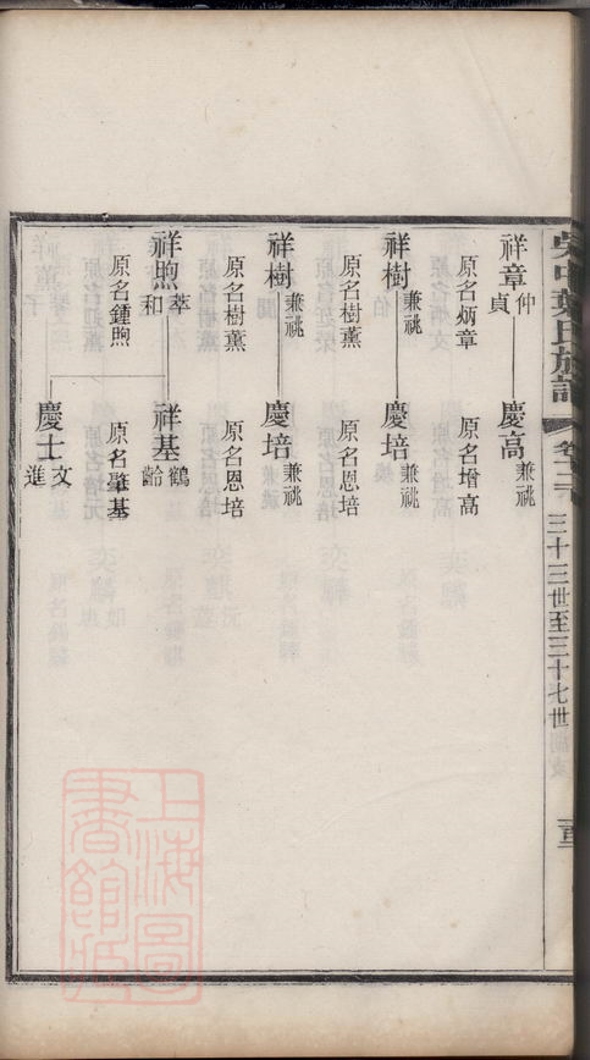 吳中葉氏族譜
卷
三十三世至三十七世
祥章
仲貞
慶高
兼祧
原名炳章
原名增高
祥樹
兼祧
慶培
兼祧
原名樹薰
原名恩培
祥樹
兼祧
慶培
兼祧
原名樹薰
原名恩培
祥煦
萃和
祥基
鶴齡
原名鍾煦
原名肇基
慶士
文進
上海圖書館藏